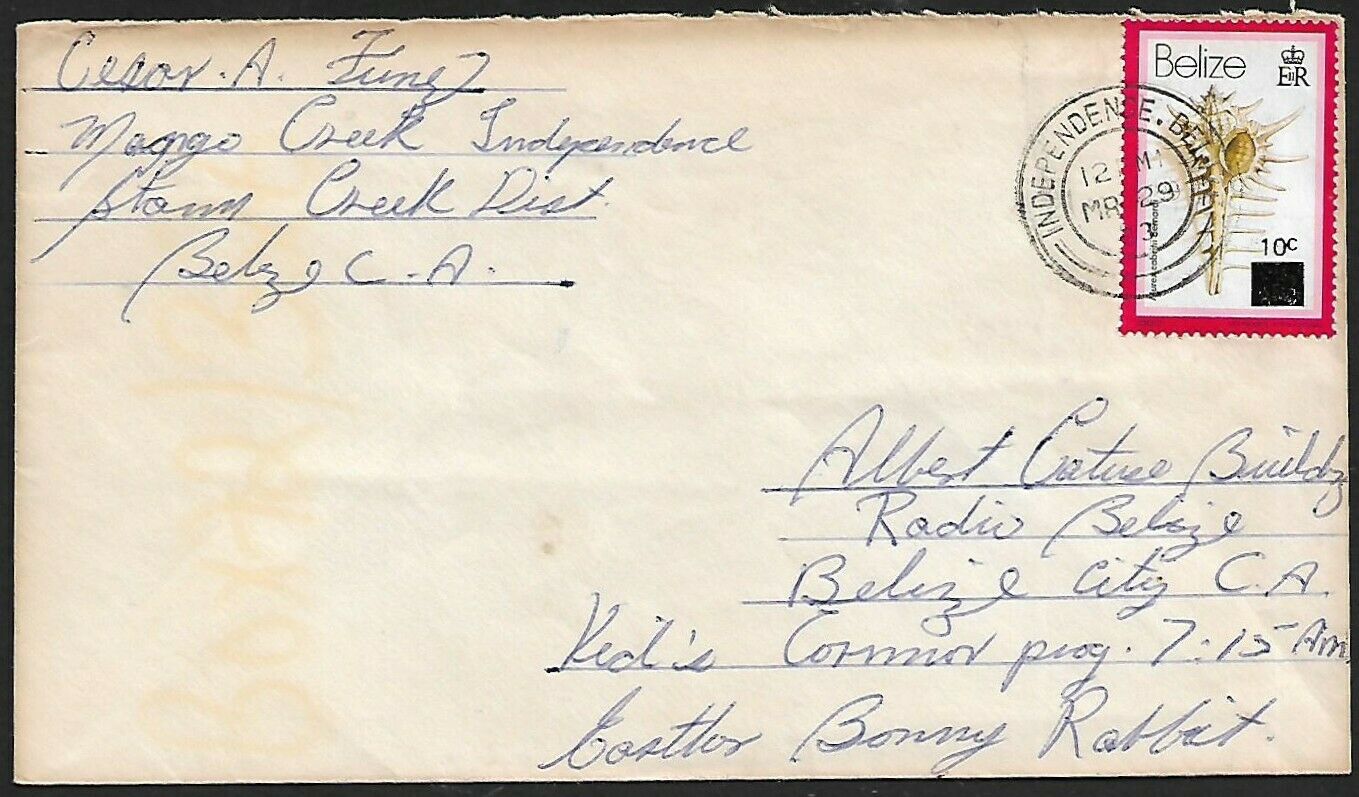 Cesar. A. Funez
Mango Creek Independence
Stann Creek Dist.
Belize C.A.
Belize
EIIR
10c
INDEPENDENCE. BELIZE
12 PM
MR 29
Albert Catuse Building
Radio Belize
Belize City C.A.
Kid's Cornnor prog. 7:15 Am
Eastter Bonny Rabbit.